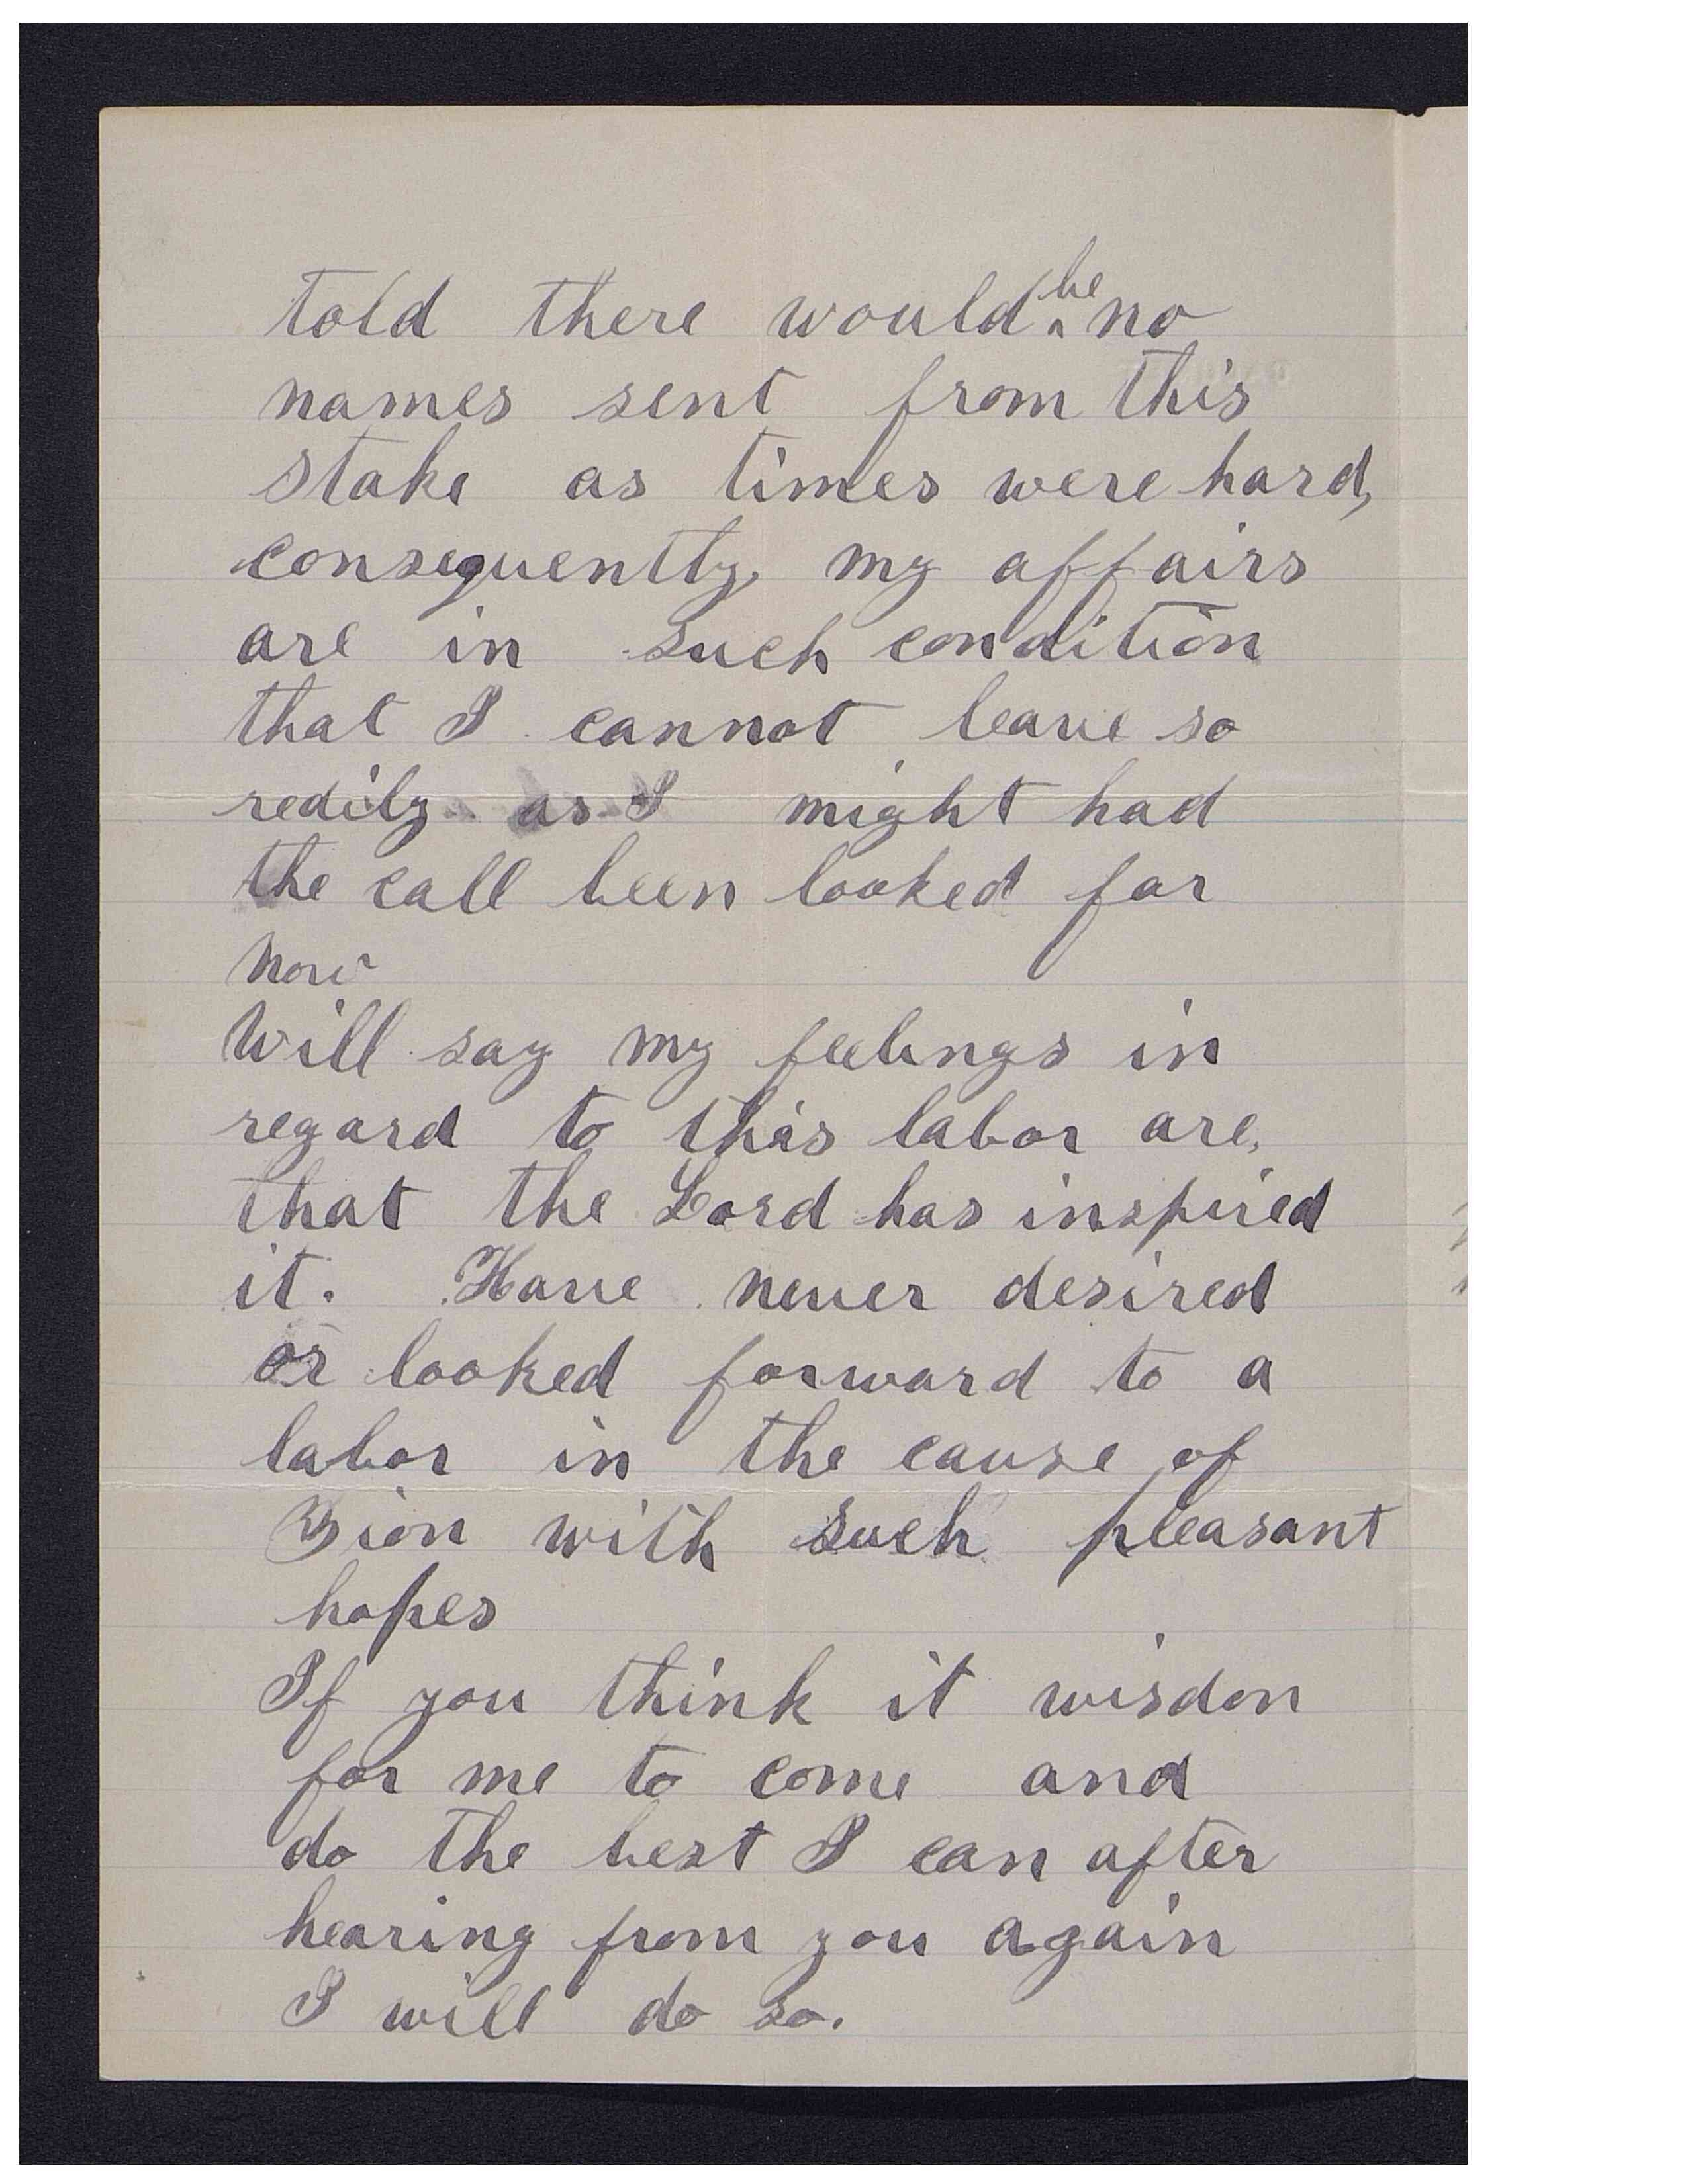 told there would ^be no
names sent from this
stake as times were hard,
consequently, my affairs
are in such condition
that I cannot leave so
redily as I might had
the call been looked for
now
Will say my feelings in
regard to this labor are,
that the Lord has inspired
it. Have never desired
or looked forward to a
labor in the cause of
Zion with such pleasant
hopes
If you think it wisdon
for me to come and
do the best I can after
hearing from you again
I will do so.